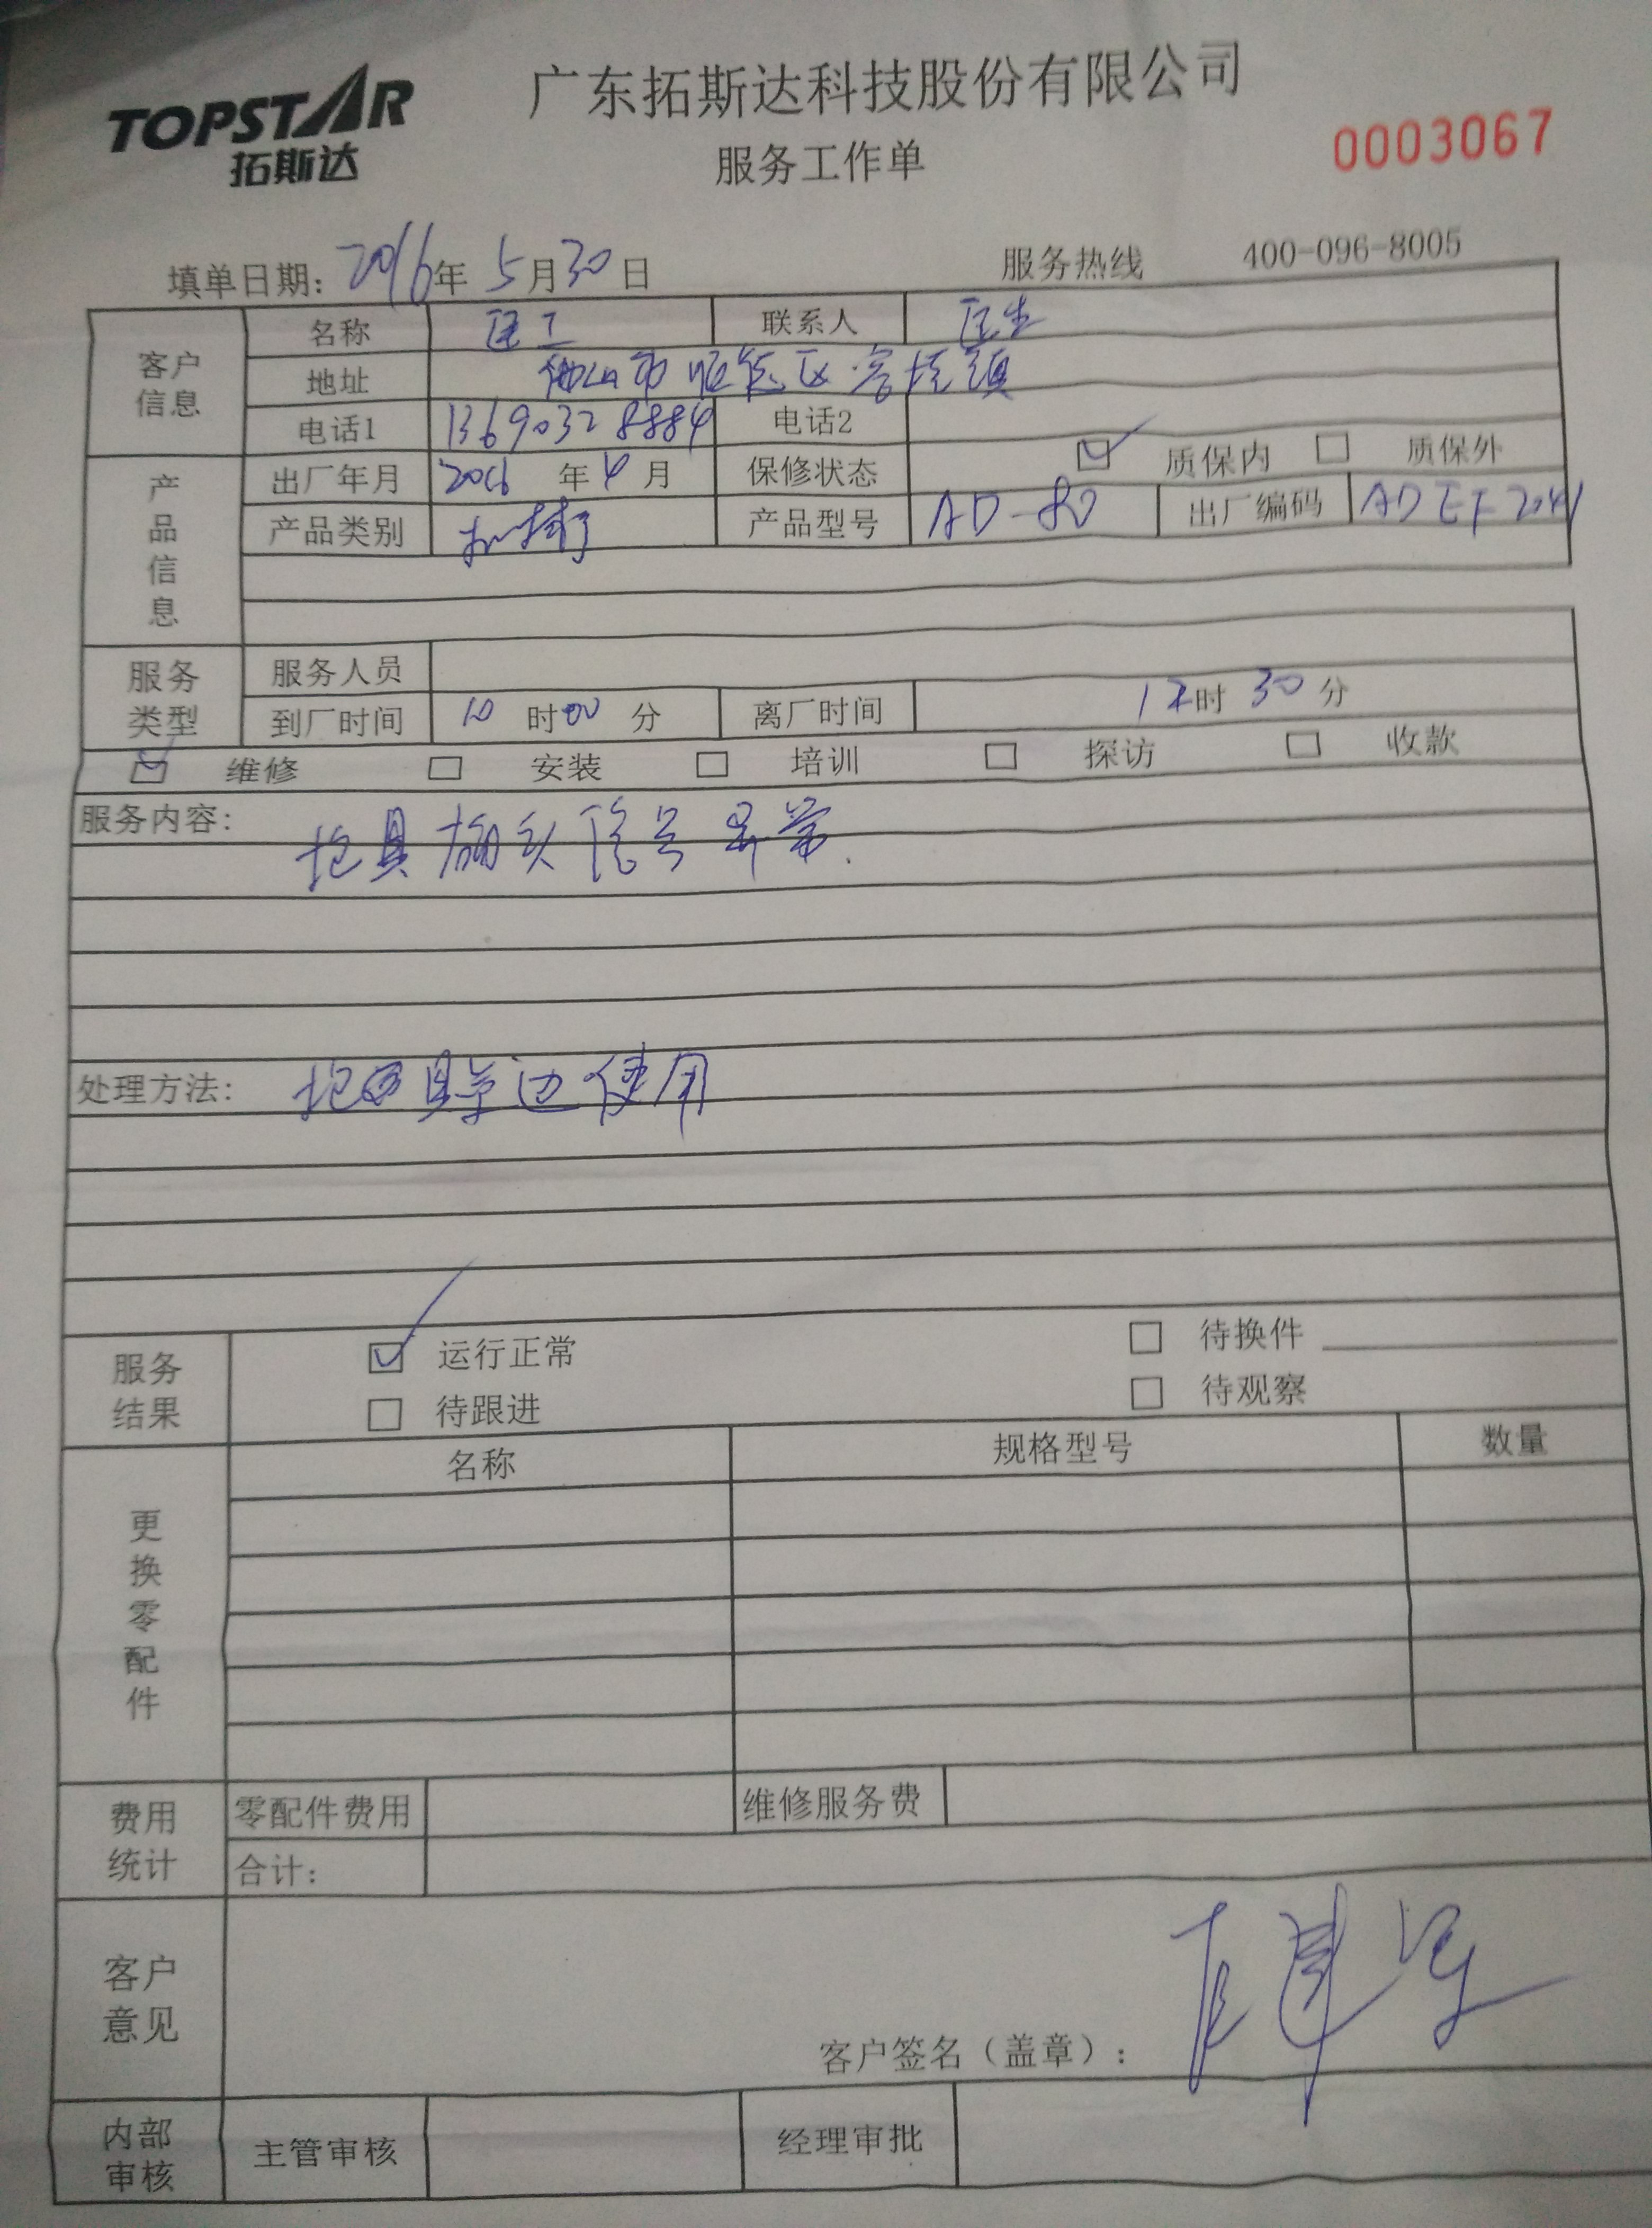 TOPSTAR
拓斯达
广东拓斯达科技股份有限公司
服务工作单
0003067
填单日期：2016年 5月30日
服务热线 400-096-8005
客户信息
名称 匡工 联系人 匡生
地址 佛山市顺德区容桂镇
电话1 13690328884 电话2
产品信息
出厂年月 2016 年 4 月 保修状态 ☑ 质保内 □ 质保外
产品类别 机械手 产品型号 AD-80 出厂编码
服务类型
服务人员
到厂时间 10 时 00 分 离厂时间 12时 30 分
☑ 维修 □ 安装 □ 培训 □ 探访 □ 收款
服务内容：
信号异常.
处理方法：
单边使用
服务结果
☑ 运行正常 □ 待换件
□ 待跟进 □ 待观察
更换零配件
名称 规格型号 数量
费用统计
零配件费用 维修服务费
合计：
客户意见
客户签名（盖章）：
内部审核
主管审核 经理审批